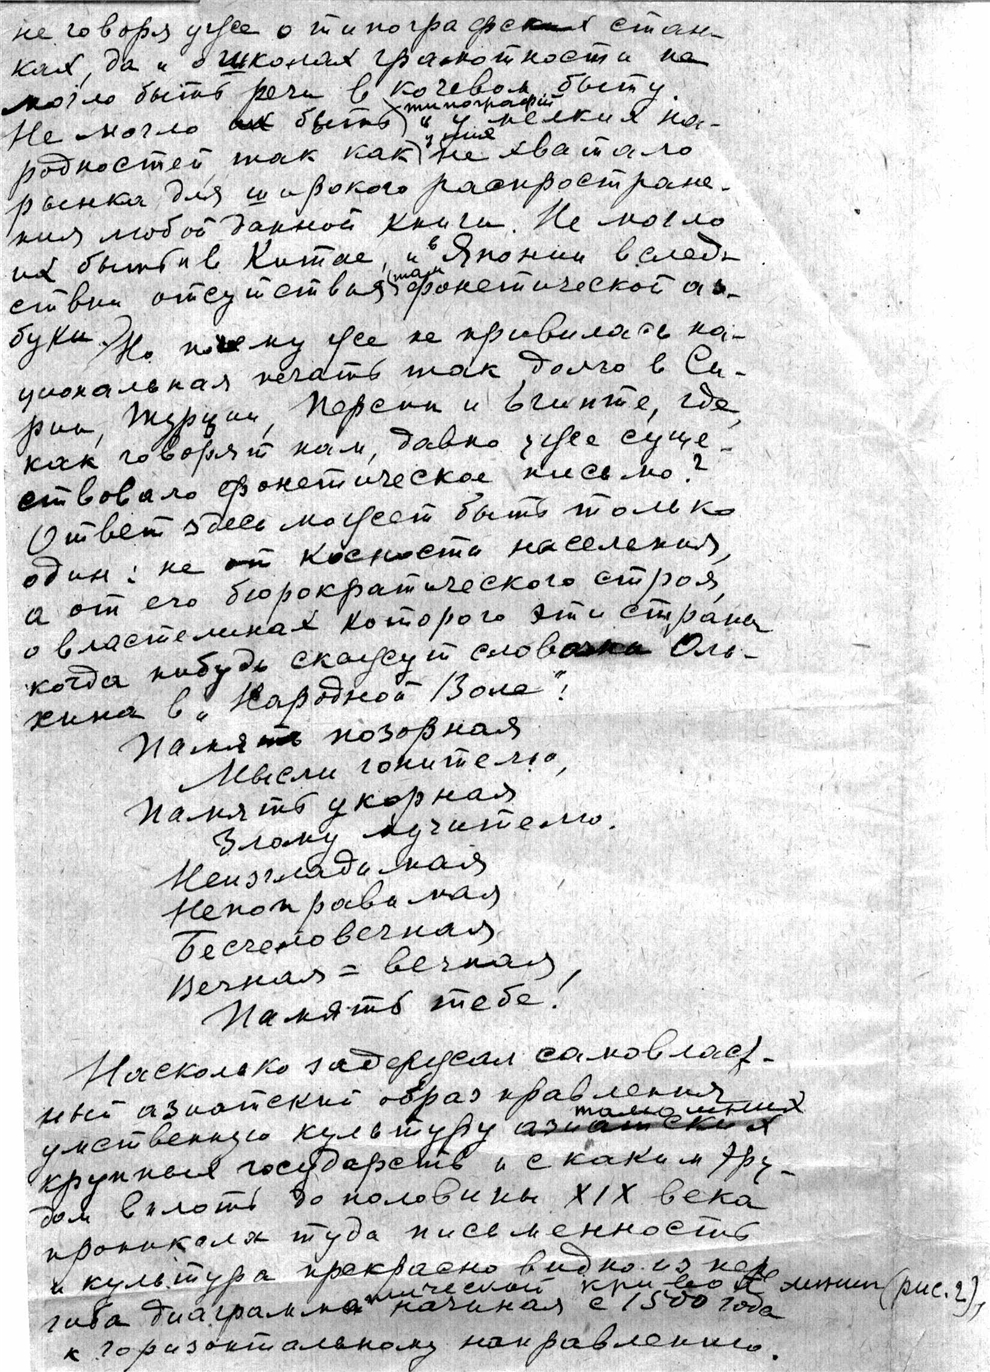 не говоря уже о типографских стан-
ках, да и о школах грамотности не
могло быть речи в кочевом быту.
Не могло их быть типографий и у мелких на-
родностей, так как у них не хватало
рынка для широкого распростране-
ния любой данной книги. Не могло
их быть и в Китае, и в Японии вслед-
ствии отсутствия там фонетической аз-
буки. Но почему же не привилась на-
циональная печать так долго в Си-
рии, Турции, Персии и Египте, где,
как говорят нам, давно уже суще-
ствовало фонетическое письмо?
Ответ здесь может быть только
один: не от косности населения,
а от его бюрократического строя,
о властелинах которого эти страны
когда нибудь скажут словами Оль-
хина в „Народной Воле“:
Память позорная
Мысли гонителю,
Память укорная
Злому мучителю.
Неизгладимая
Непоправимая
Бесчеловечная
Вечная = вечная,
Память тебе!
Насколько задержал самовласт-
ный азиатский образ правления
умственную культуру азиатских тамошних
крупных государств и с каким тру-
дом вплоть до половины XIX века
проникала туда письменность
и культура прекрасно видно из пере-
гиба диаграмматической кривой линии (рис. 2),
начиная с 1500 года
к горизонтальному направлению.